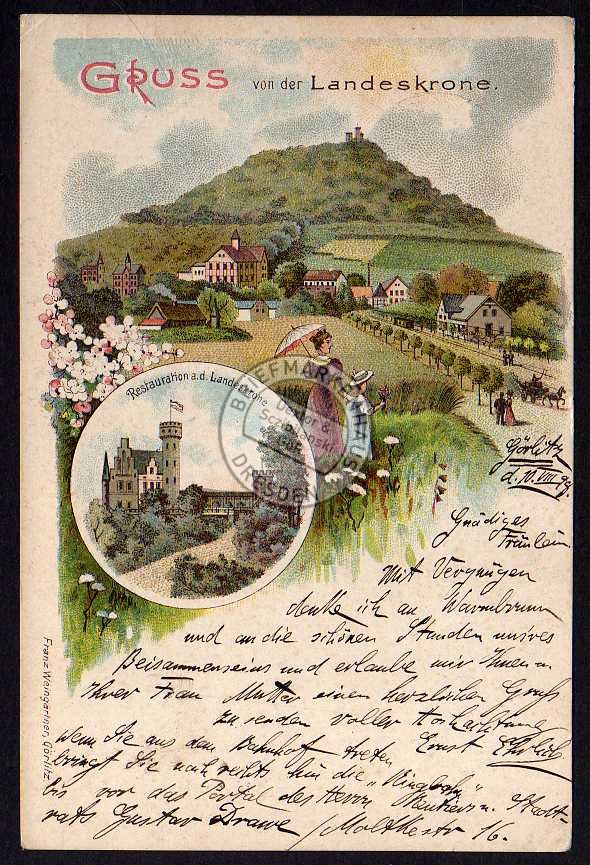 GRUSS von der Landeskrone.
Restauration a.d. Landeskrone
BRIEFMARKENHAUS
DRESDEN
Görlitz
d. 10. VIII 99.
Gnädiges
Fräulein.
Mit Vergnügen
denke ich an Warmbrunn
und an die schönen Stunden unsres
Beisammenseins und erlaube mir Ihnen u.
Ihrer Frau Mutter einen herzlichen Gruß
zu senden voller Hochachtung
Ernst
Wenn Sie aus dem Bahnhof treten
bringt Sie nach rechts hin die „Ringbahn"
bis vor das Portal des Herrn Rentiers u. Stadt-
rats Gustav Drawe / Moltkestr 16.
Franz Weingärtner, Görlitz.